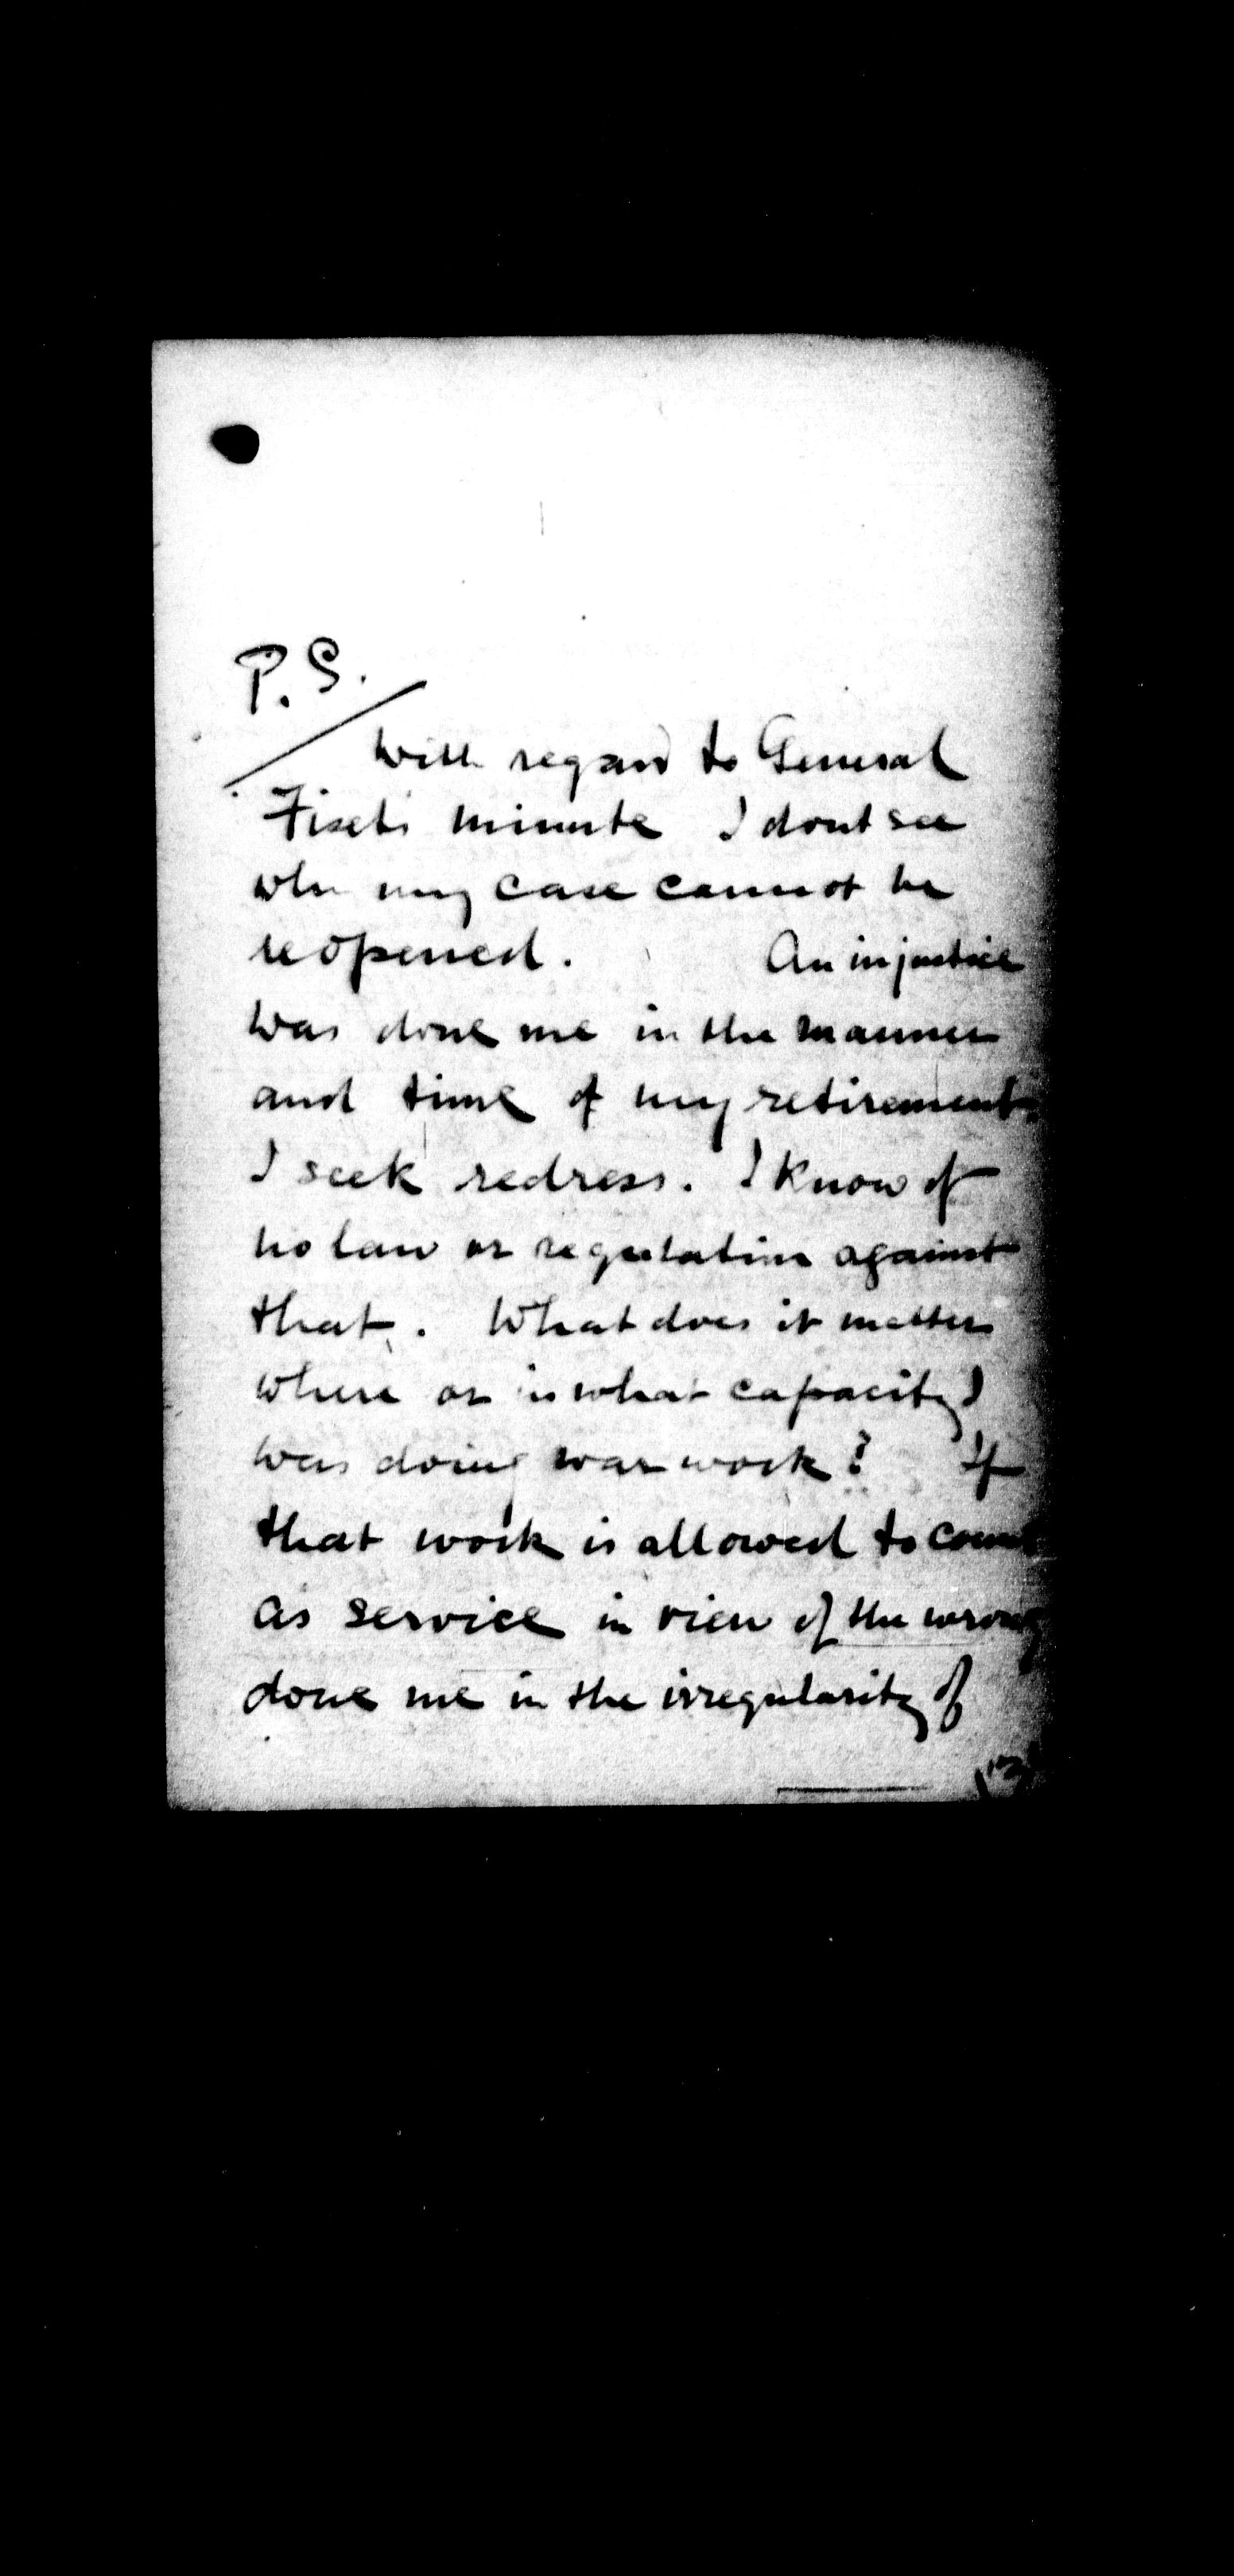 P.S.
With regard to General
Fiset's minute I dont see
why my case cannot be
reopened. An injustice
was done me in the manner
and time of my retirement.
I seek redress. I know of
no law or regulation against
that. What does it matter
where or in what capacity I
was doing war work? If
that work is allowed to count
as service in view of the wrong
done me in the irregularity of